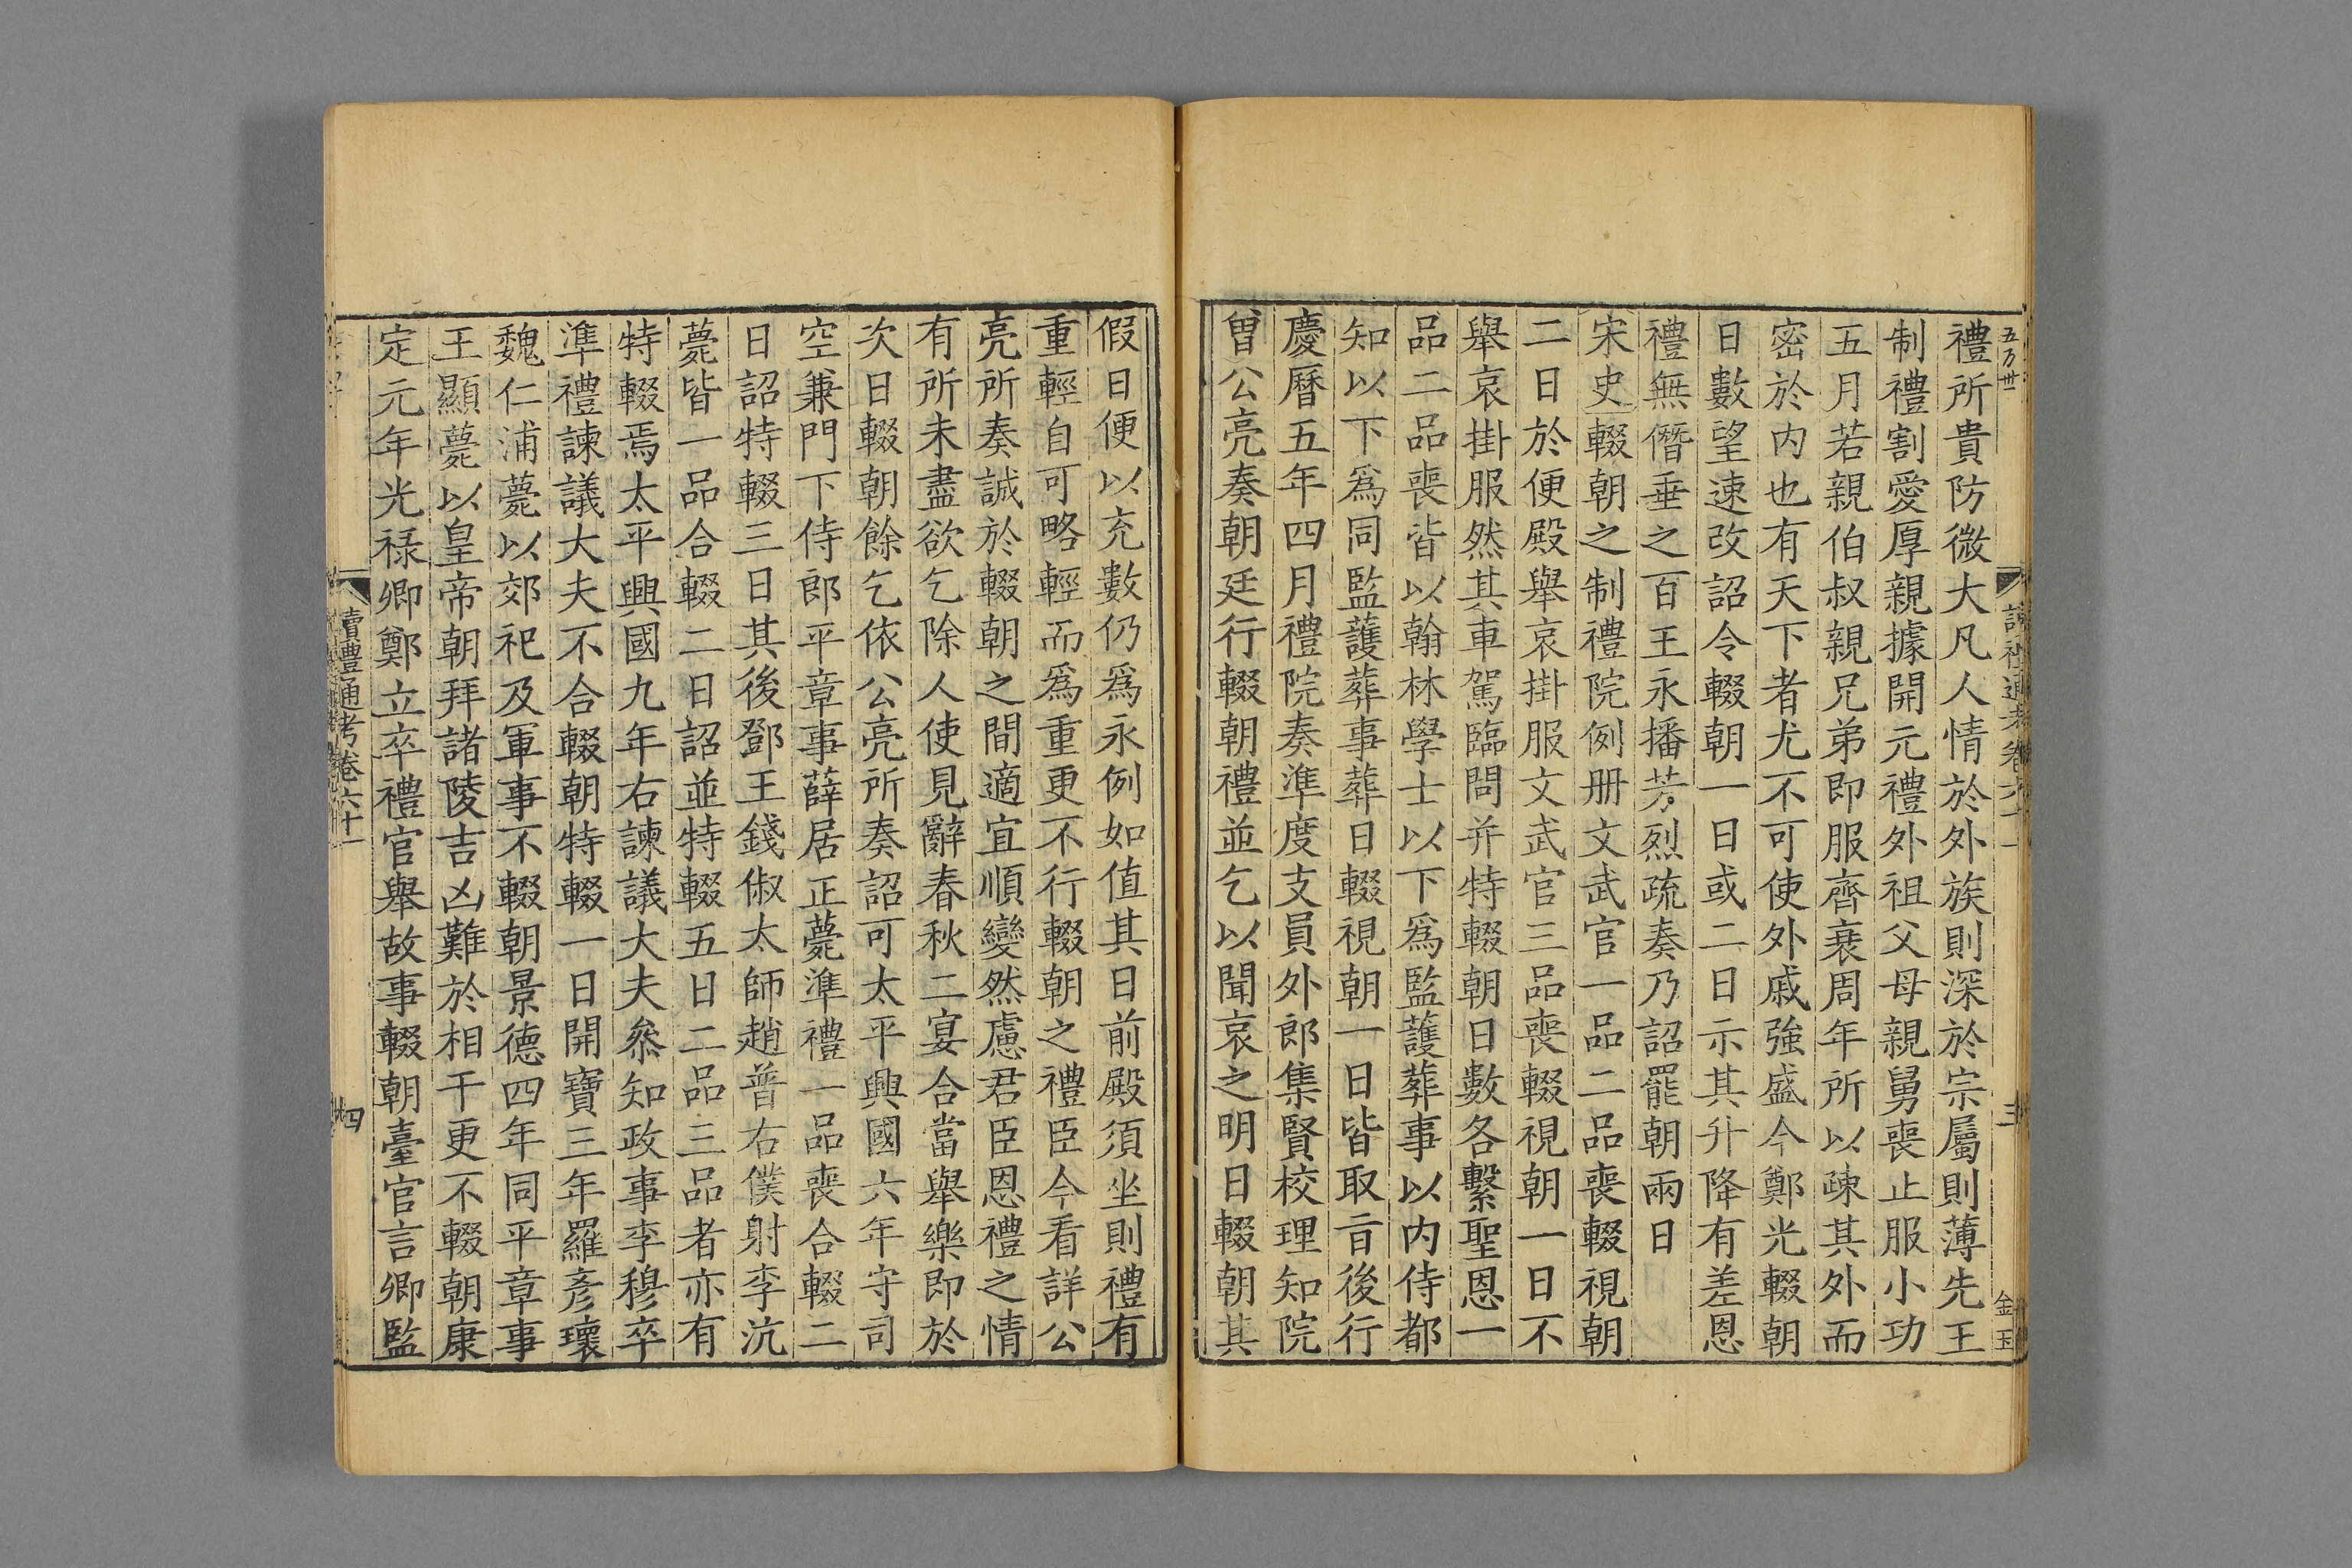 禮所貴防微大凡人情於外族則深於宗屬則薄先王
制禮割愛厚親據開元禮外祖父母親舅喪止服小功
五月若親伯叔親兄弟即服齊衰周年所以疎其外而
密於内也有天下者尤不可使外戚強盛今鄭光輟朝
日數望速改詔令輟朝一日或二日示其升降有差恩
禮無僭垂之百王永播芳烈疏奏乃詔罷朝兩日
宋史輟朝之制禮院例册文武官一品二品喪輟視朝
二日於便殿舉哀掛服文武官三品喪輟視朝一日不
舉哀掛服然其車駕臨問并特輟朝日數各繫聖恩一
品二品喪皆以翰林學士以下爲監護葬事以内侍都
知以下爲同監護葬事葬日輟視朝一日皆取㫖後行
慶曆五年四月禮院奏準度支員外郎集賢校理知院
曾公亮奏朝廷行輟朝禮並乞以聞哀之明日輟朝其
假日便以充數仍爲永例如值其日前殿須坐則禮有
重輕自可略輕而爲重更不行輟朝之禮臣今看詳公
亮所奏誠於輟朝之間適宜順變然慮君臣恩禮之情
有所未盡欲乞除人使見辭春秋二宴合當舉樂即於
次日輟朝餘乞依公亮所奏詔可太平興國六年守司
空兼門下侍郎平章事薛居正薨準禮一品喪合輟二
日詔特輟三日其後鄧王錢俶太師趙普右僕射李沆
薨皆一品合輟二日詔並特輟五日二品三品者亦有
特輟焉太平興國九年右諫議大夫叅知政事李穆卒
準禮諫議大夫不合輟朝特輟一日開寶三年羅彥瓌
魏仁浦薨以郊祀及軍事不輟朝景德四年同平章事
王顯薨以皇帝朝拜諸陵吉凶難於相干更不輟朝康
定元年光禄卿鄭立卒禮官舉故事輟朝臺官言卿監
讀禮通考卷六十一
四